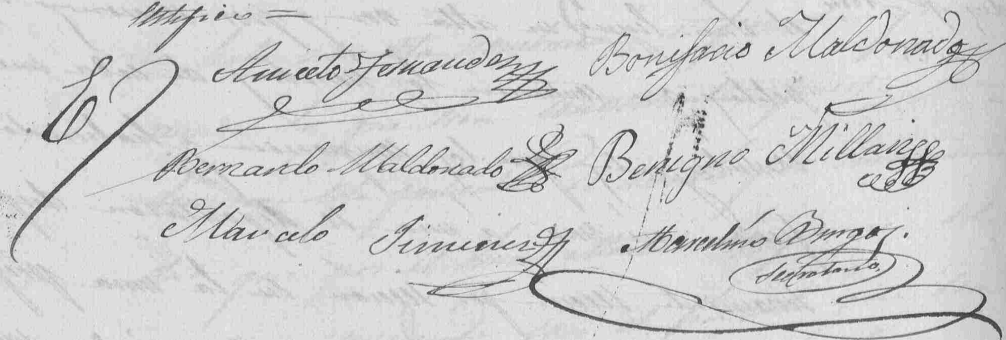 certifico =
Aniceto Fernandez Bonifacio Maldonado
Bernardo Maldonado Benigno Millan
Marcelo Jimenez Marcelino Burgos.
Secretario